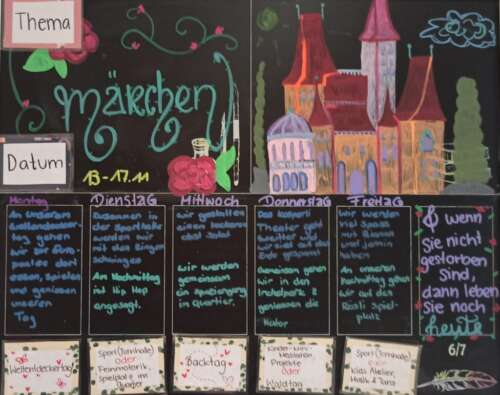 Thema
märchen
Datum
13-17.11
Montag
An unserem
Weltentdecker
tag gehen
wir
essen, spielen
und geniessen
unseren
Tag
Weltentdeckertag
Dienstag
Zusammen in
der Sporthalle
werden wir
Am Nachmittag
ist Hip Hop
angesagt.
Sport (Turnhalle)
oder
Feinmotorik,
Spielplatz im
Quartier
Mittwoch
wir gestalten
einen leckeren
wir werden
gemeinsam
ein Spaziergang
im Quartier.
Backtag
Donnerstag
Das Kasperli
Theater geht
weiter
wir sind auf das
Ende gespannt
Gemeinsam gehen
wir in den
geniessen die
Natur
Kinder-Mini-
Projekte
oder
Waldtag
Freitag
Wir werden
viel Spass
haben
An unserem
Nachmittag gehen
wir auf den
Spiel-
platz
Sport (Turnhalle)
oder
Kids Atelier,
Musik & Tanz
& wenn
sie nicht
gestorben
sind,
dann leben
sie noch
heute
6/7